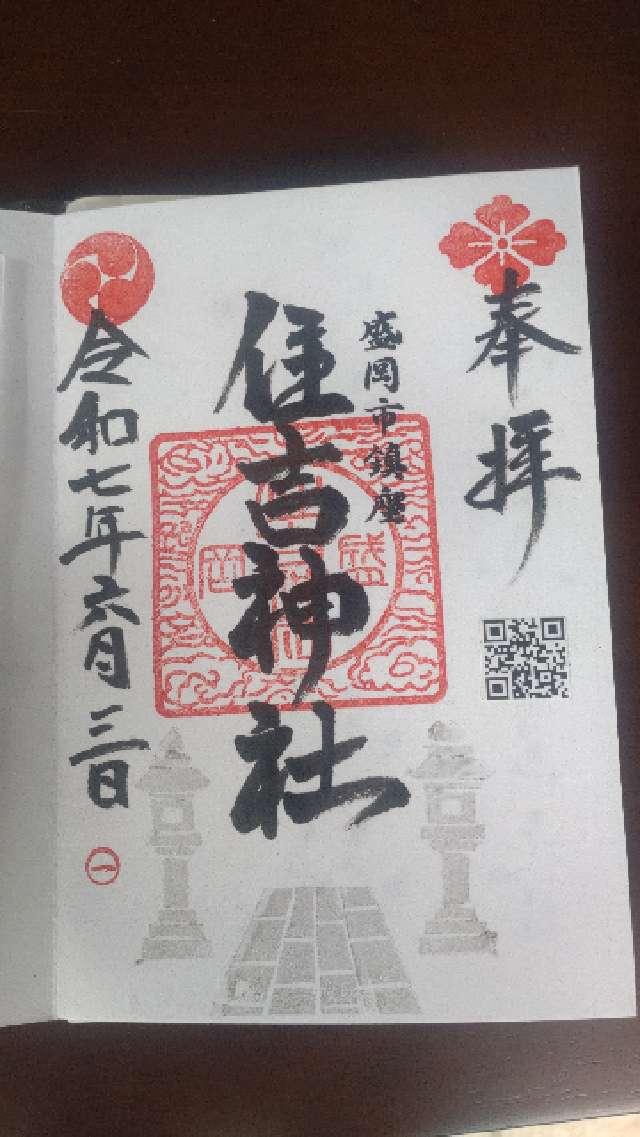 奉拝
盛岡市鎮座
住吉神社
令和七年六月三日
一